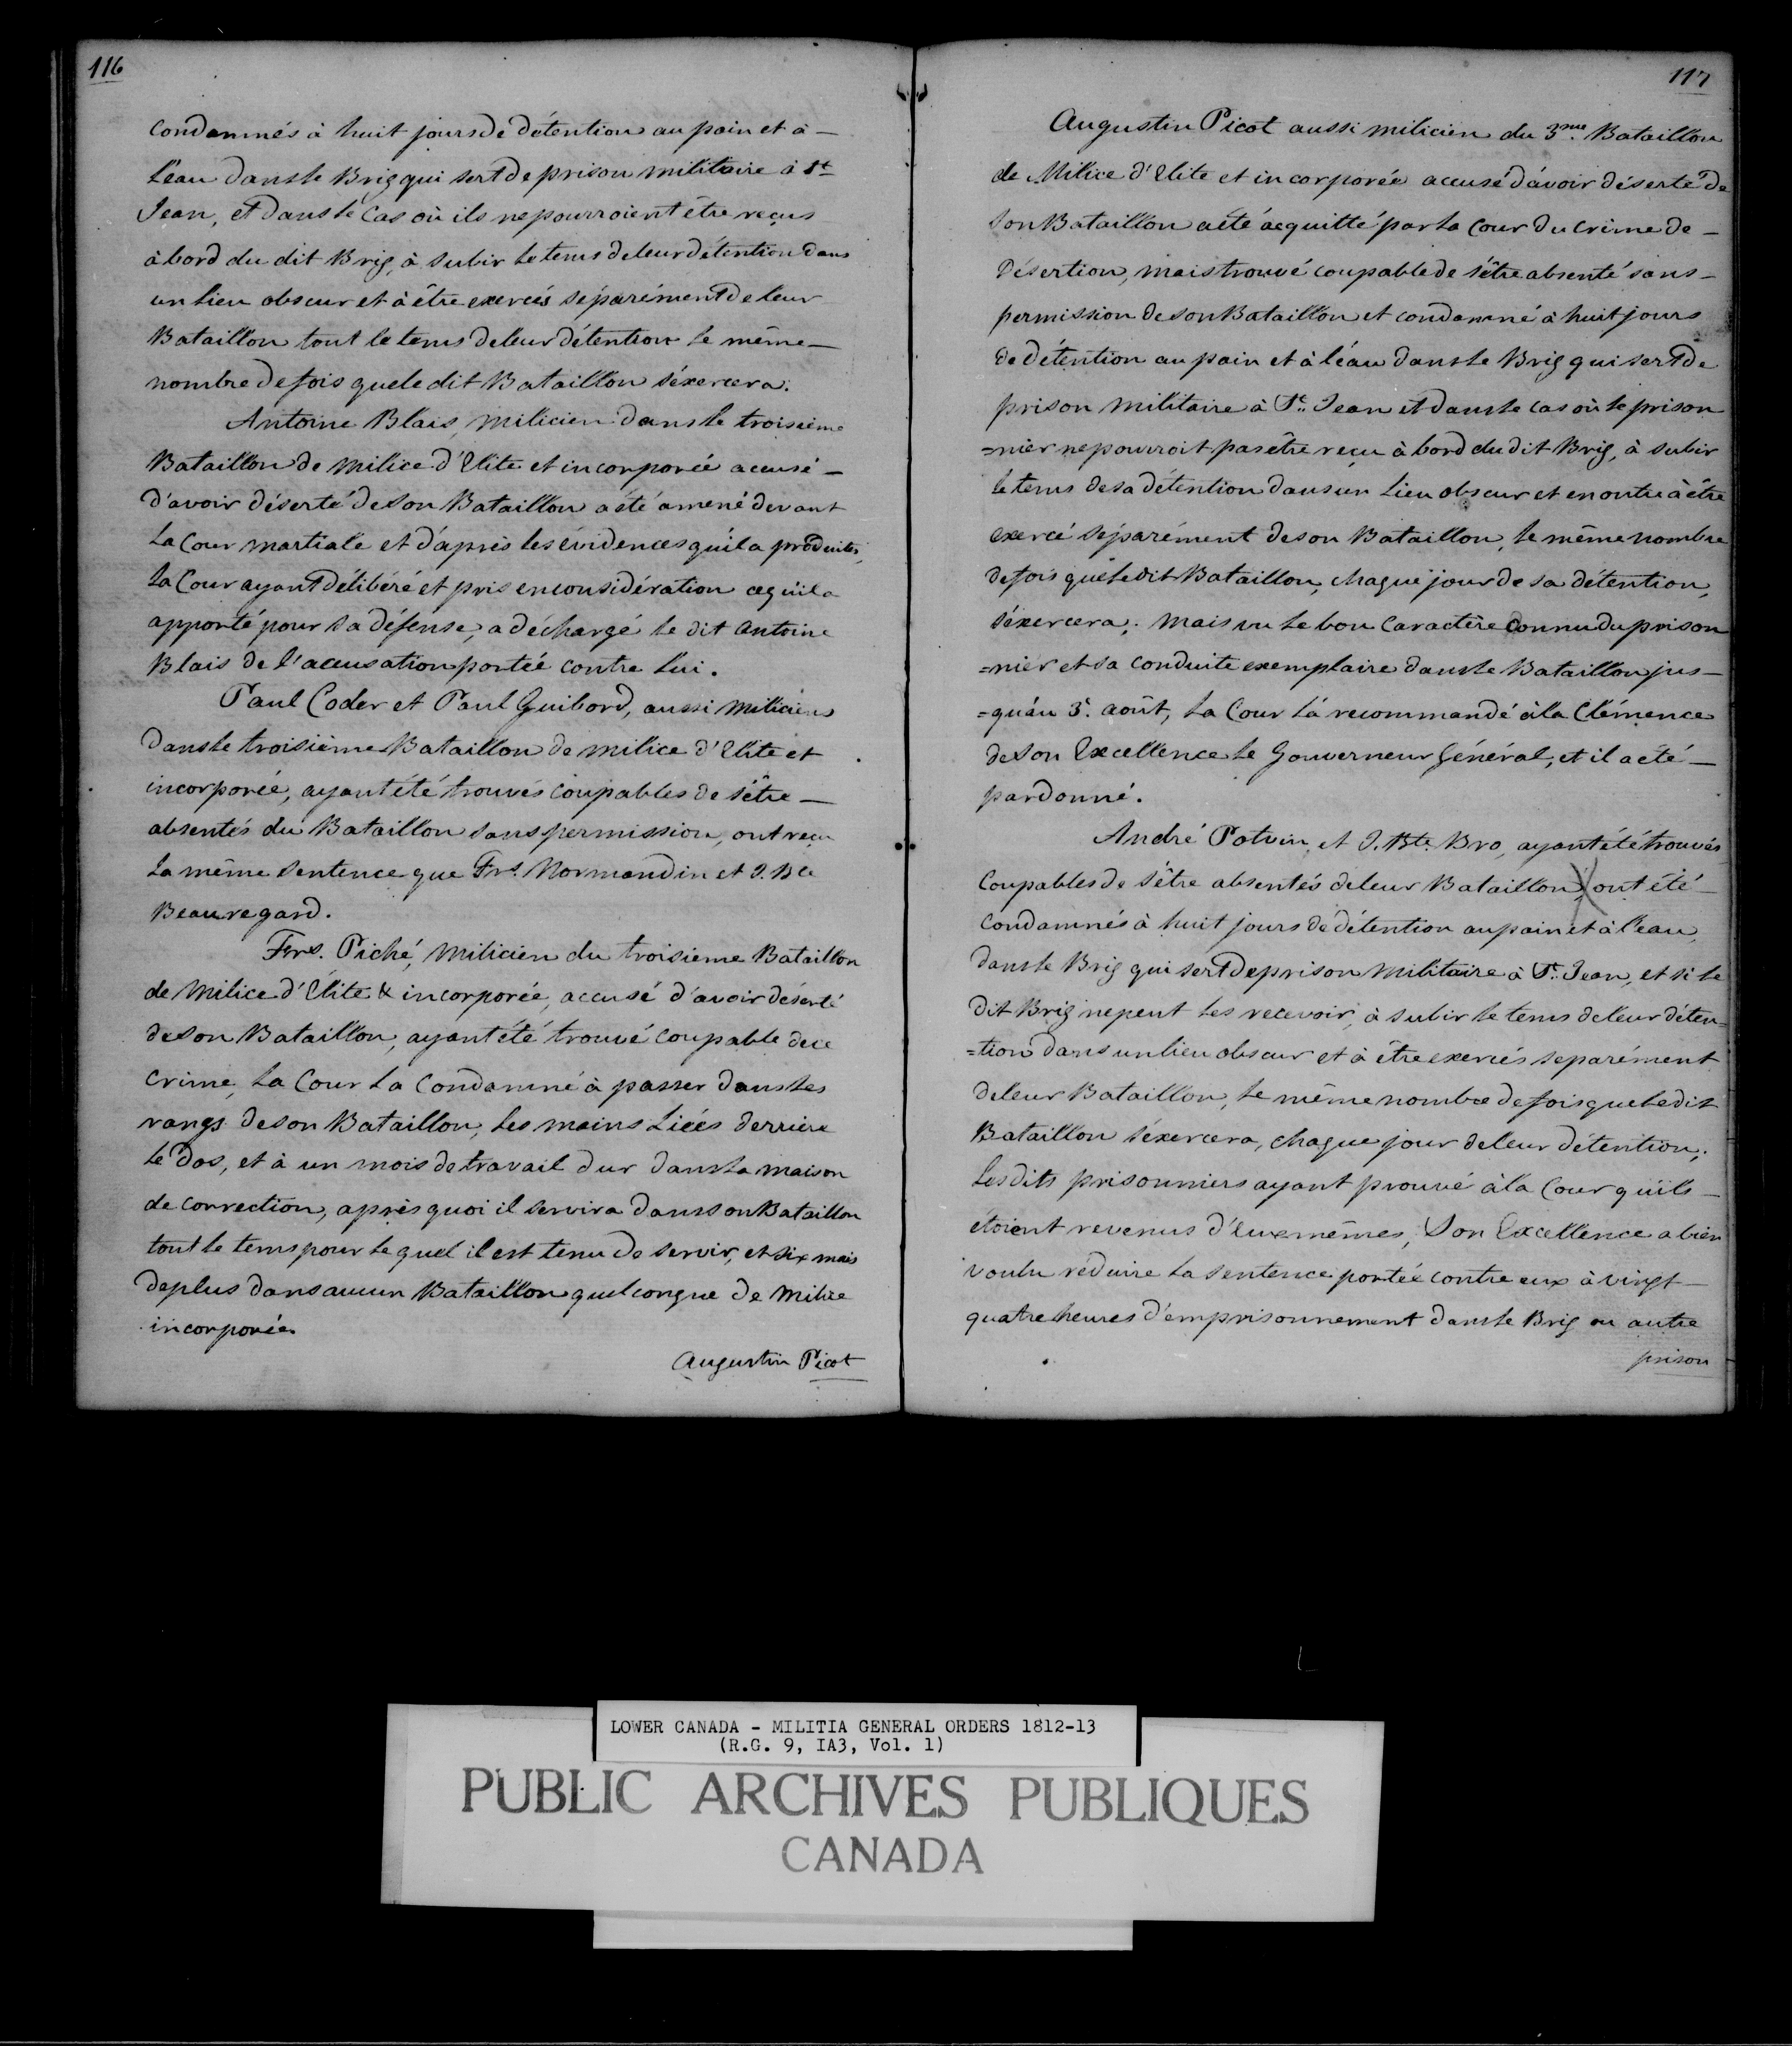 116
condamnés à huit jours de détention au pain et à —
l'eau dans le Brig qui sert de prison militaire à St
Jean, et dans le cas où ils ne pourroient être reçus
à bord du dit Brig, à subir le tems de leur détention dans
un lieu obscur et à être exercés séparément de leur
Bataillon tout le tems de leur détention le même —
nombre de fois que le dit Bataillon s'éxercera.
Antoine Blais, milicien dans le troisieme
Bataillon de milice d'Elite et incorporée accusé —
d'avoir déserté de son Bataillon a été amené devant
la Cour martiale et d'après les évidences qu'il a produites,
la Cour ayant délibéré et pris en considération ce qu'il a
apporté pour sa défense, a déchargé le dit Antoine
Blais de l'accusation portée contre lui.
Paul Coder et Paul Guibord, aussi miliciens
dans le troisième Bataillon de milice d'Elite et
incorporée, ayant été trouvés coupables de s'être —
absentés du Bataillon sans permission, ont reçu
la même sentence que Frs. Normandin et J. Bte
Beauregard.
Frs. Piché, milicien du troisieme Bataillon
de Milice d'Elite & incorporée, accusé d'avoir déserté
de son Bataillon, ayant été trouvé coupable de ce
crime, la Cour l'a condamné à passer dans les
rangs de son Bataillon, les mains liées derriere
le dos, et à un mois de travail dur dans la maison
de correction, après quoi il servira dans son Bataillon
tout le tems pour lequel il est tenu de servir, et six mois
de plus dans aucun Bataillon quelconque de Milice
incorporée.
Augustin Picot
117
Augustin Picot aussi milicien du 3me. Bataillon
de Milice d'Elite et incorporée accusé d'avoir déserté de
son Bataillon a été acquitté par la Cour du crime de —
désertion, mais trouvé coupable de s'être absenté sans —
permission de son Bataillon et condamné à huit jours
de détention au pain et à l'éau dans le Brig qui sert de
prison militaire à St. Jean et dans le cas où le prison
=nier ne pourroit pas être reçu à bord du dit Brig, à subir
le tems de sa détention dans un lieu obscur et en outre à être
exercé séparément de son Bataillon, le même nombre
de fois que le dit Bataillon, chaque jour de sa détention,
s'éxercera; mais vu le bon caractère connu du prison
=nier et sa conduite exemplaire dans le Bataillon jus —
=qu'au 3e. août, la Cour l'a recommandé à la Clémence
de Son Excellence le Gouverneur Général, et il a été —
pardonné.
André Potvin et J. Bte. Bro, ayant été trouvés
coupables de s'être absentés de leur Bataillon, ont été —
condamnés à huit jours de détention au pain et à l'eau,
dans le Brig qui sert de prison militaire à St. Jean, et si le
dit Brig ne peut les recevoir, à subir le tems de leur déten=
=tion dans un lieu obscur et à être exercés separément
de leur Bataillon, le même nombre de fois que le dit
Bataillon s'éxercera, chaque jour de leur détention;
les dits prisonniers ayant prouvé à la Cour qu'ils —
étoient revenus d'eux mêmes, Son Excellence a bien
voulu réduire la sentence portée contre eux à vingt —
quatre heures d'emprisonnement dans le Brig ou autre
prison
LOWER CANADA - MILITIA GENERAL ORDERS 1812-13
(R.G. 9, IA3, Vol. 1)
PUBLIC ARCHIVES PUBLIQUES
CANADA